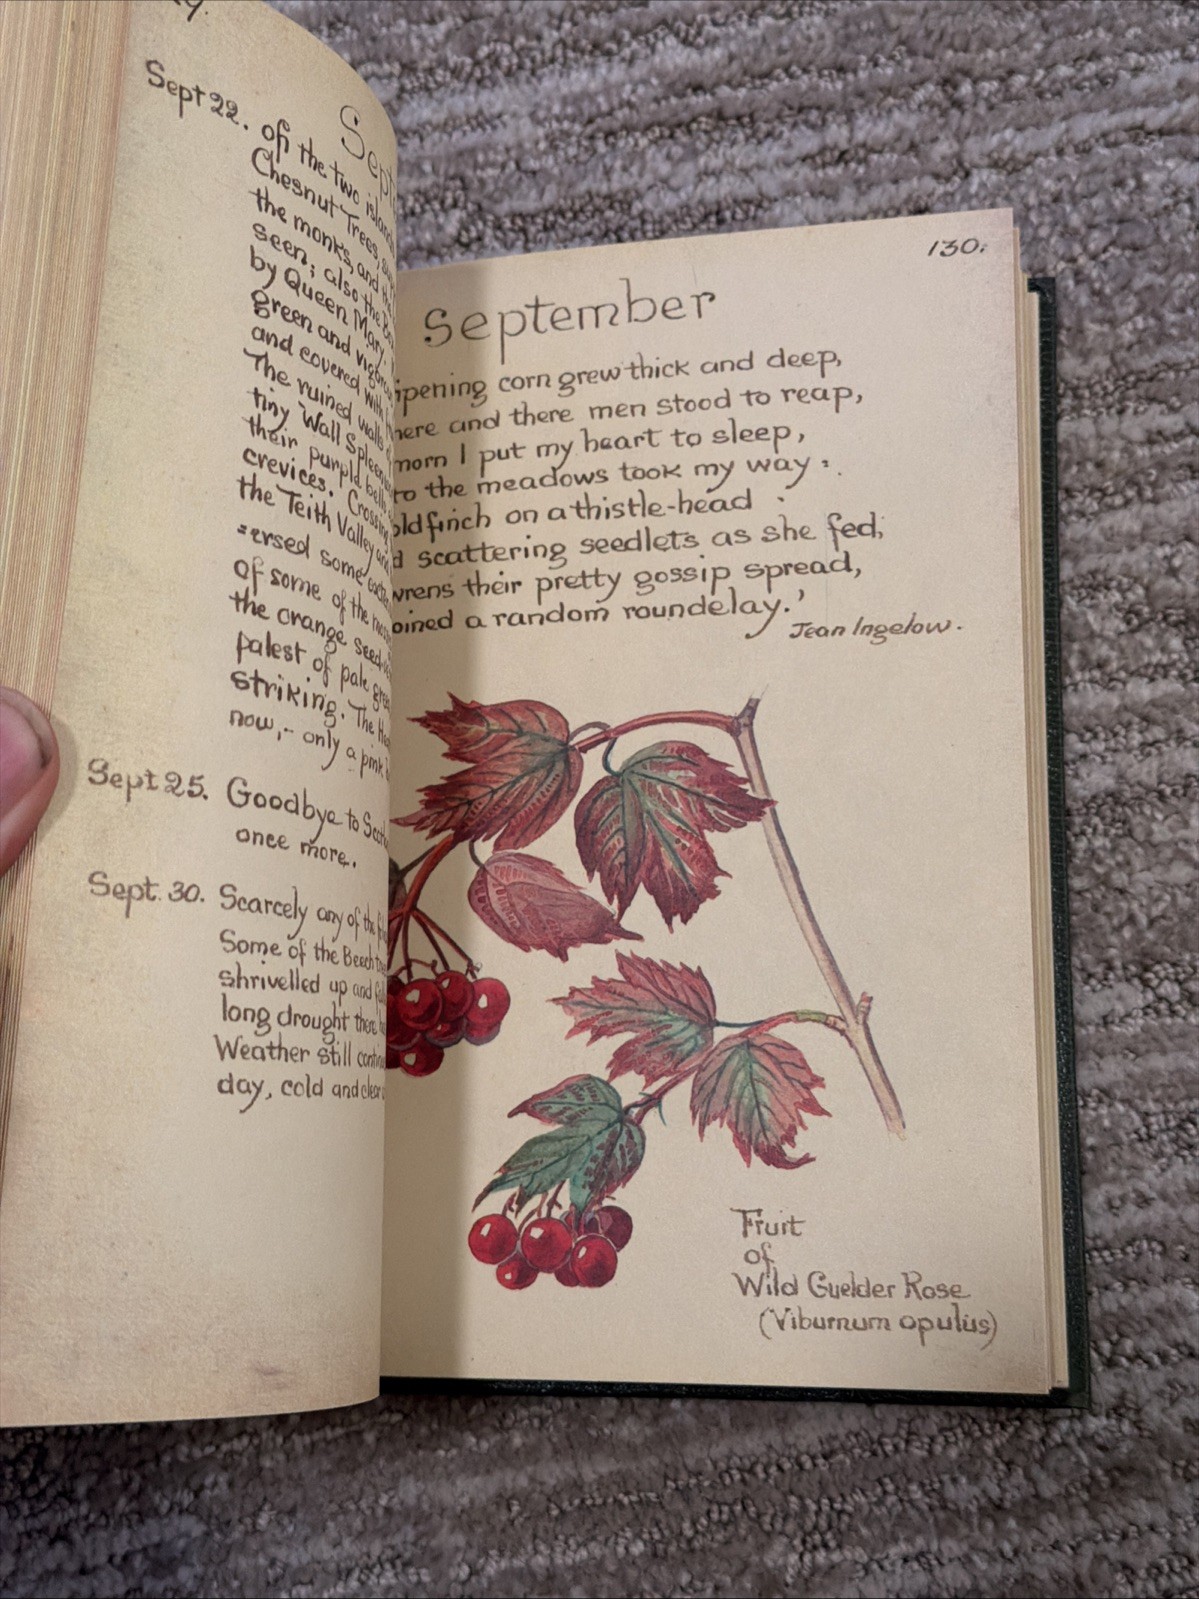 Sept
Sept 22. of the two
Chesnut Trees,
the monks, and
seen; also the
by Queen Mary.
green and
and covered with
The ruined walls
tiny Wall
their purple bells
crevices. Crossing
the Teith Valley
=ersed some
of some of the
the orange seed
palest of pale
striking. The
now,- only a pink
Sept 25. Goodbye to
once more.
Sept. 30. Scarcely any of the
Some of the Beech
shrivelled up and
long drought there
Weather still
day, cold and clear
130.
September
ipening corn grew thick and deep,
here and there men stood to reap,
morn I put my heart to sleep,
to the meadows took my way:
oldfinch on a thistle-head
d scattering seedlets as she fed,
wrens their pretty gossip spread,
oined a random roundelay.'
Jean Ingelow.
Fruit
of
Wild Guelder Rose
(Viburnum opulus)